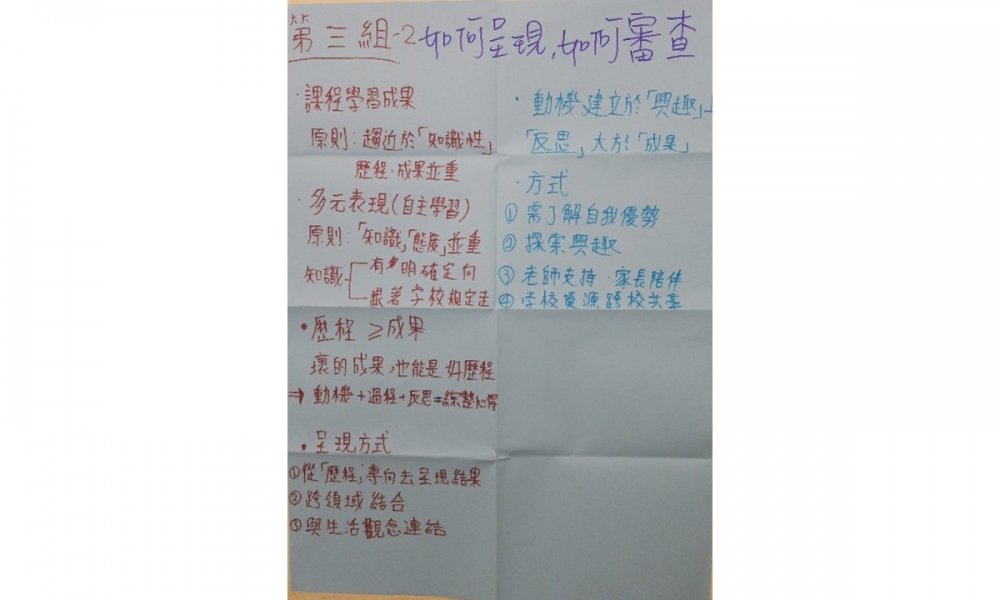 第三組-2 如何呈現,如何審查
·課程學習成果
原則:趨近於「知識性」
歷程·成果並重
·多元表現(自主學習)
原則:「知識」「態度」並重
知識
有明確定向
跟著学校規定走
•歷程≥成果
壞的成果,也能是好歷程
→ 動機+過程+反思=綜整心得
•呈現方式
①從「歷程」導向去呈現結果
②跨領域結合
③與生活觀念連結
·動機建立於「興趣」上
「反思」大於「成果」
·方式
①需了解自我優勢
②探索興趣
③老師支持·家長陪伴
④学校資源跨校共享